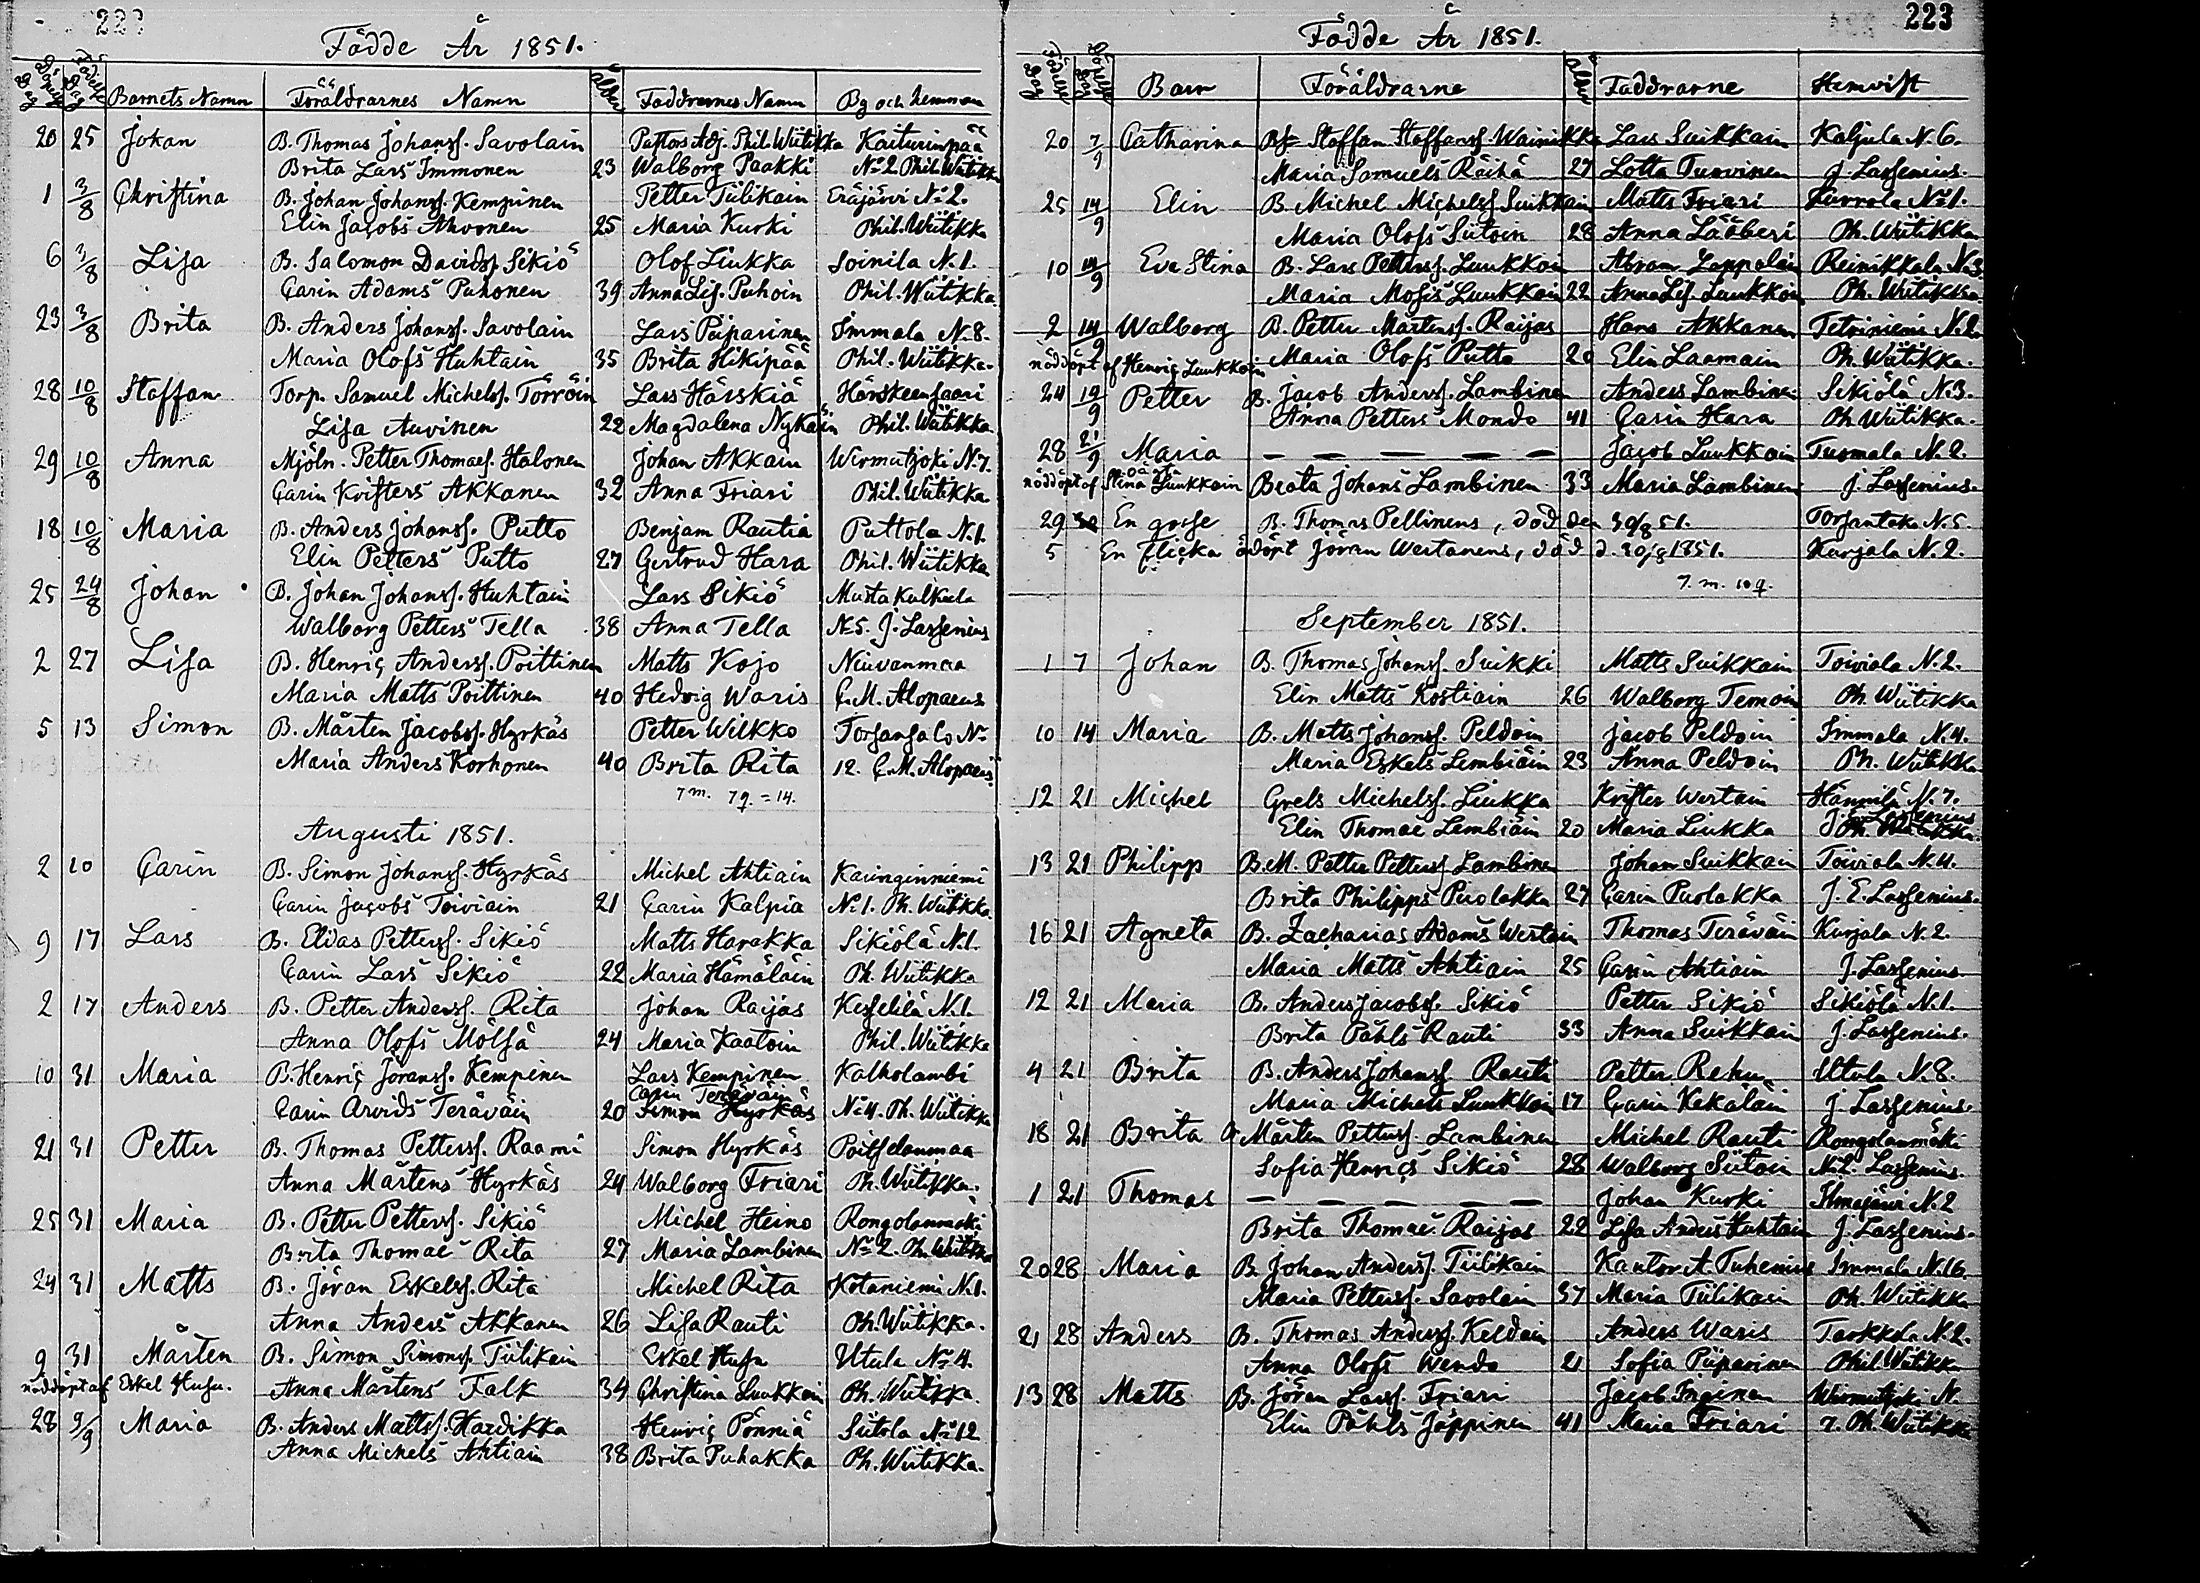 Födde År 1851.
Barnets Namn Föräldrarnes Namn ålder Faddrarnes Namn By och hemman
20 25 Johan B. Thomas Johanss. Savolain Pastors Adj. Phil. Wiitikka Kaiturinpää
Brita Lars Immonen 23 Walborg Paakki No 2 Phil. Wiitikka
1 3/8 Christina B. Johan Johanss. Kempinen Petter Tiilikain Eräjärvi No 2.
Elin Jacobs Ahvonen 25 Maria Kurki Phil. Wiitikka
6 3/8 Lisa B. Salomon Davidss. Sikiö Olof Liukka Soinila N. 1.
Carin Adams Puhonen 39 Anna Lis. Puhoin Phil. Wiitikka.
23 3/8 Brita B. Anders Johanss. Savolain Lars Piiparinen Immala N. 8.
Maria Olofs Huhtain 35 Brita Hikipää Phil. Wiitikka.
28 10/8 Staffan Torp. Samuel Michelss. Törröin Lars Härskiä Härskeensaari
Lisa Auvinen 22 Magdalena Nykäin Phil. Wiitikka.
29 10/8 Anna Mjöln. Petter Thomaes. Halonen Johan Akkain Wirmutjoki N. 7.
Carin Kristers Akkanen 32 Anna Friari Phil. Wiitikka
18 10/8 Maria B. Anders Johanss. Putto Benjam Rautia Puttola N. 1.
Elin Petters Putto 27 Gertrud Hara Phil. Wiitikka
25 24/8 Johan B. Johan Johanss. Huhtain Lars Sikiö Mustakulkula
Walborg Petters Tella 38 Anna Tella No 5. J. Lassenius
2 27 Lisa B. Henric Anderss. Poittinen Matts Kojo Niuvanmaa
Maria Matts Poittinen 40 Hedvig Waris C. M. Alopaeus
5 13 Simon B. Mårten Jacobss. Hyrkäs Petter Wilkko Torsansalo No
Maria Anders Korhonen 40 Brita Rita 12. C. M. Alopaeus
7 m. 7 q. = 14.
Augusti 1851.
2 10 Carin B. Simon Johanss. Hyrkäs Michel Ahtiain Kainginniemi
Carin Jacobs Toiviain 21 Carin Kalpia No 1. Ph. Wiitikka.
9 17 Lars B. Elias Petterss. Sikiö Matts Harakka Sikiölä N. 1.
Carin Lars Sikiö 22 Maria Hämäläin Ph. Wiitikka
2 17 Anders B. Petter Anderss. Rita Johan Raijas Kesselilä N. 1.
Anna Olofs Mölsä 24 Maria Kaatoin Phil. Wiitikka
10 31 Maria B. Henric Jöranss. Kempinen Lars Kempinen Kalholambi
Carin Teräväin
Carin Arvids Teräväin 20 Simon Hyrkäs No 4. Ph. Wiitikka
21 31 Petter B. Thomas Petterss. Raami Simon Hyrkäs Poitselanmaa
Anna Mårtens Hyrkäs 24 Walborg Friari Ph. Wiitikka.
25 31 Maria B. Petter Petterss. Sikiö Michel Heino Rongolanmäki
Brita Thomae Rita 27 Maria Lambinen No 2. Ph. Wiitikka
24 31 Matts B. Jöran Eskelss. Rita Michel Rita Kotaniemi N. 1.
Anna Anders Akkanen 26 Lisa Rauti Ph. Wiitikka.
9 31 Mårten B. Simon Simonss. Tiilikain Eskel Husu Utula No 4.
nöddöpt af Eskel Husu. Anna Mårtens Falk 34 Christina Luukkain Ph. Wiitikka.
28 9/9 Maria B. Anders Mattss. Hardikka Henric Pönniä Siitola No 12
Anna Michels Ahtiain 38 Brita Puhakka Ph. Wiitikka.
223
Födde År 1851.
Barn Föräldrarne ålder Faddrarne Hemvist
20 7/9 Catharina Staffan Staffanss. Wainikka Lars Suikkain Kaljula N. 6.
Maria Samuels Räihä 27 Lotta Tuovinen J. Lassenius.
25 14/9 Elin B. Michel Michelss. Suikkain Matts Friari No 1.
Maria Olofs Siitoin 28 Anna Lääberi Ph. Wiitikka
10 14/9 Eva Stina B. Lars Petterss. Luukkoin Abram Lappalain Reinikkala N. 3
Maria Mosis Luukkain 22 Anna Lis. Luukkoin Ph. Wiitikka.
2 14/9 Walborg B. Petter Mårtenss. Raijas Hans Akkanen Tetriniemi N. 2.
nöddöpt af Henric Luukkoin Maria Olofs Putto 20 Elin Laamain Ph. Wiitikka.
24 19/9 Petter B. Jacob Anderss. Lambinen Anders Lambinen Sikiölä N. 3.
Anna Petters Mondo 41 Carin Hara Ph. Wiitikka.
28 21/9 Maria — — — — — Jacob Luukkain Tuomala N. 2.
nöddöpt af Stina Luukkain Beata Johans Lambinen 33 Maria Lambinen J. Lassenius.
29 30 En gosse B. Thomas Pellinens, död den 30/8 51. Torsantaka N. 5.
5 En flicka odöpt Jöran Wertanens, död d. 20/8 1851. Kurjala N. 2.
7. m. 10 q.
September 1851.
1 7 Johan B. Thomas Johanss. Suikki Matts Suikkain Toiviala N. 2.
Elin Matts Kostiain 26 Walborg Temoin Ph. Wiitikka
10 14 Maria B. Matts Johanss. Peldoin Jacob Peldoin Immala N. 4.
Maria Eskels Lembiäin 23 Anna Peldoin Ph. Wiitikka
12 21 Michel Grels Michelss. Liukka Krister Wertain Hännilä N. 7.
Elin Thomae Lembiäin 20 Maria Liukka J. E. Lassenius
13 21 Philipp B. M. Petter Petterss. Lambinen Johan Suikkain Toiviala N. 4.
Brita Philipps Puolakka 27 Carin Puolakka J. E. Lassenius.
16 21 Agneta B. Zacharias Adams Wertain Thomas Teräväin Kurjala N. 2.
Maria Matts Ahtiain 25 Carin Ahtiain J. Lassenius.
12 21 Maria B. Anders Jacobss. Sikiö Petter Sikiö Sikiölä N. 1.
Brita Påhls Rauti 33 Anna Suikkain J. Lassenius.
4 21 Brita B. Anders Johanss. Rauti Petter Rehu Utula N. 8.
Maria Michels Luukkain 17 Carin Kekäläin J. Lassenius.
18 21 Brita Mårten Petterss. Lambinen Michel Rauti Rongolanmäki
Sofia Henrics Sikiö 28 Walborg Siitoin N. 2. Lassenius.
1 21 Thomas — — — — — Johan Kurki Ilmajärvi N. 2
Brita Thomae Raijas 22 Lisa Anders Huhtain J. Lassenius.
20 28 Maria B. Johan Anderss. Tiilikain Kantor A. Tuhenius Immala N. 16.
Maria Petterss. Savolain 37 Maria Tiilikain Ph. Wiitikka
21 28 Anders B. Thomas Anderss. Keldain Anders Waris Tarkkola N. 2.
Anna Olofs Wendo 21 Sofia Piiparinen Phil. Wiitikka
13 28 Matts B. Jöran Larss. Friari Jacob Inginen Wirmutjoki N.
Elin Påhls Jäppinen 41 Maria Friari 7. Ph. Wiitikka